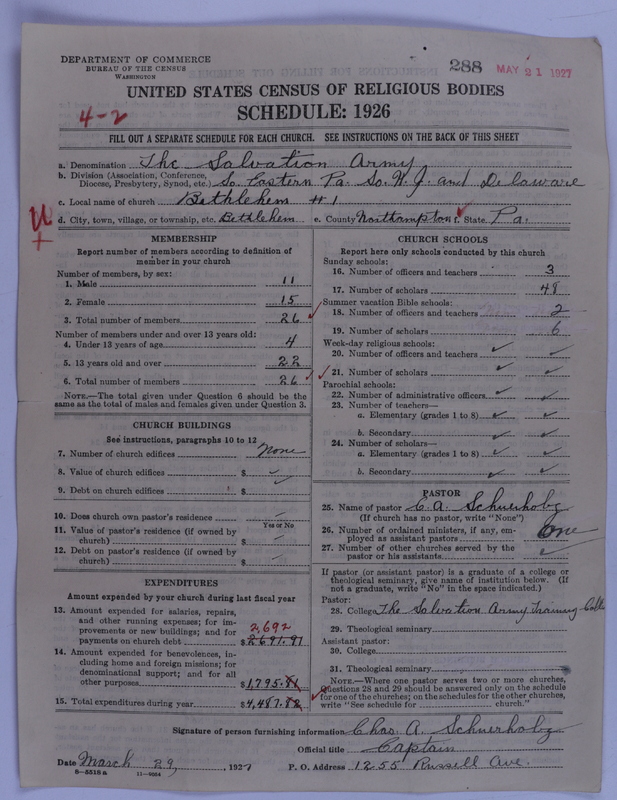 DEPARTMENT OF COMMERCE
BUREAU OF THE CENSUS
WASHINGTON
288 MAY 21 1927
UNITED STATES CENSUS OF RELIGIOUS BODIES
4-2
SCHEDULE: 1926
FILL OUT A SEPARATE SCHEDULE FOR EACH CHURCH. SEE INSTRUCTIONS ON THE BACK OF THIS SHEET
a. Denomination The Salvation Army
b. Division (Association, Conference,
Diocese, Presbytery, Synod, etc.) So. Eastern Pa. So. N.J. and Delaware
c. Local name of church Bethlehem #1
d. City, town, village, or township, etc. Bethlehem e. County Northampton f. State Pa.
MEMBERSHIP
Report number of members according to definition of
member in your church
Number of members, by sex:
1. Male 11
2. Female 15
3. Total number of members 26
Number of members under and over 13 years old:
4. Under 13 years of age 4
5. 13 years old and over 22
6. Total number of members 26
NOTE.—The total given under Question 6 should be the
same as the total of males and females given under Question 3.
CHURCH BUILDINGS
See instructions, paragraphs 10 to 12
7. Number of church edifices None
8. Value of church edifices $
9. Debt on church edifices $
10. Does church own pastor's residence
Yes or No
11. Value of pastor's residence (if owned by
church) $
12. Debt on pastor's residence (if owned by
church) $
EXPENDITURES
Amount expended by your church during last fiscal year
13. Amount expended for salaries, repairs,
and other running expenses; for im-
provements or new buildings; and for 2,692
payments on church debt $2691.91
14. Amount expended for benevolences, in-
cluding home and foreign missions; for
denominational support; and for all
other purposes $1,795.91
15. Total expenditures during year $4,487.82
CHURCH SCHOOLS
Report here only schools conducted by this church
Sunday schools:
16. Number of officers and teachers 3
17. Number of scholars 48
Summer vacation Bible schools:
18. Number of officers and teachers 2
19. Number of scholars 6
Week-day religious schools:
20. Number of officers and teachers
21. Number of scholars
Parochial schools:
22. Number of administrative officers
23. Number of teachers—
a. Elementary (grades 1 to 8)
b. Secondary
24. Number of scholars—
a. Elementary (grades 1 to 8)
b. Secondary
PASTOR
25. Name of pastor C. A. Schuerholz
(If church has no pastor, write "None")
26. Number of ordained ministers, if any, em-
ployed as assistant pastors One
27. Number of other churches served by the
pastor or his assistants
If pastor (or assistant pastor) is a graduate of a college or
theological seminary, give name of institution below. (If
not a graduate, write "No" in the space indicated.)
Pastor:
28. College The Salvation Army Training College
29. Theological seminary
Assistant pastor:
30. College
31. Theological seminary
NOTE.—Where one pastor serves two or more churches,
Questions 28 and 29 should be answered only on the schedule
for one of the churches; on the schedules for the other churches,
write "See schedule for church."
Signature of person furnishing information Chas. A. Schuerholz
Official title Captain
Date March 29, 1927 P. O. Address 1255 Russell Ave.
8-5518a 11-9064